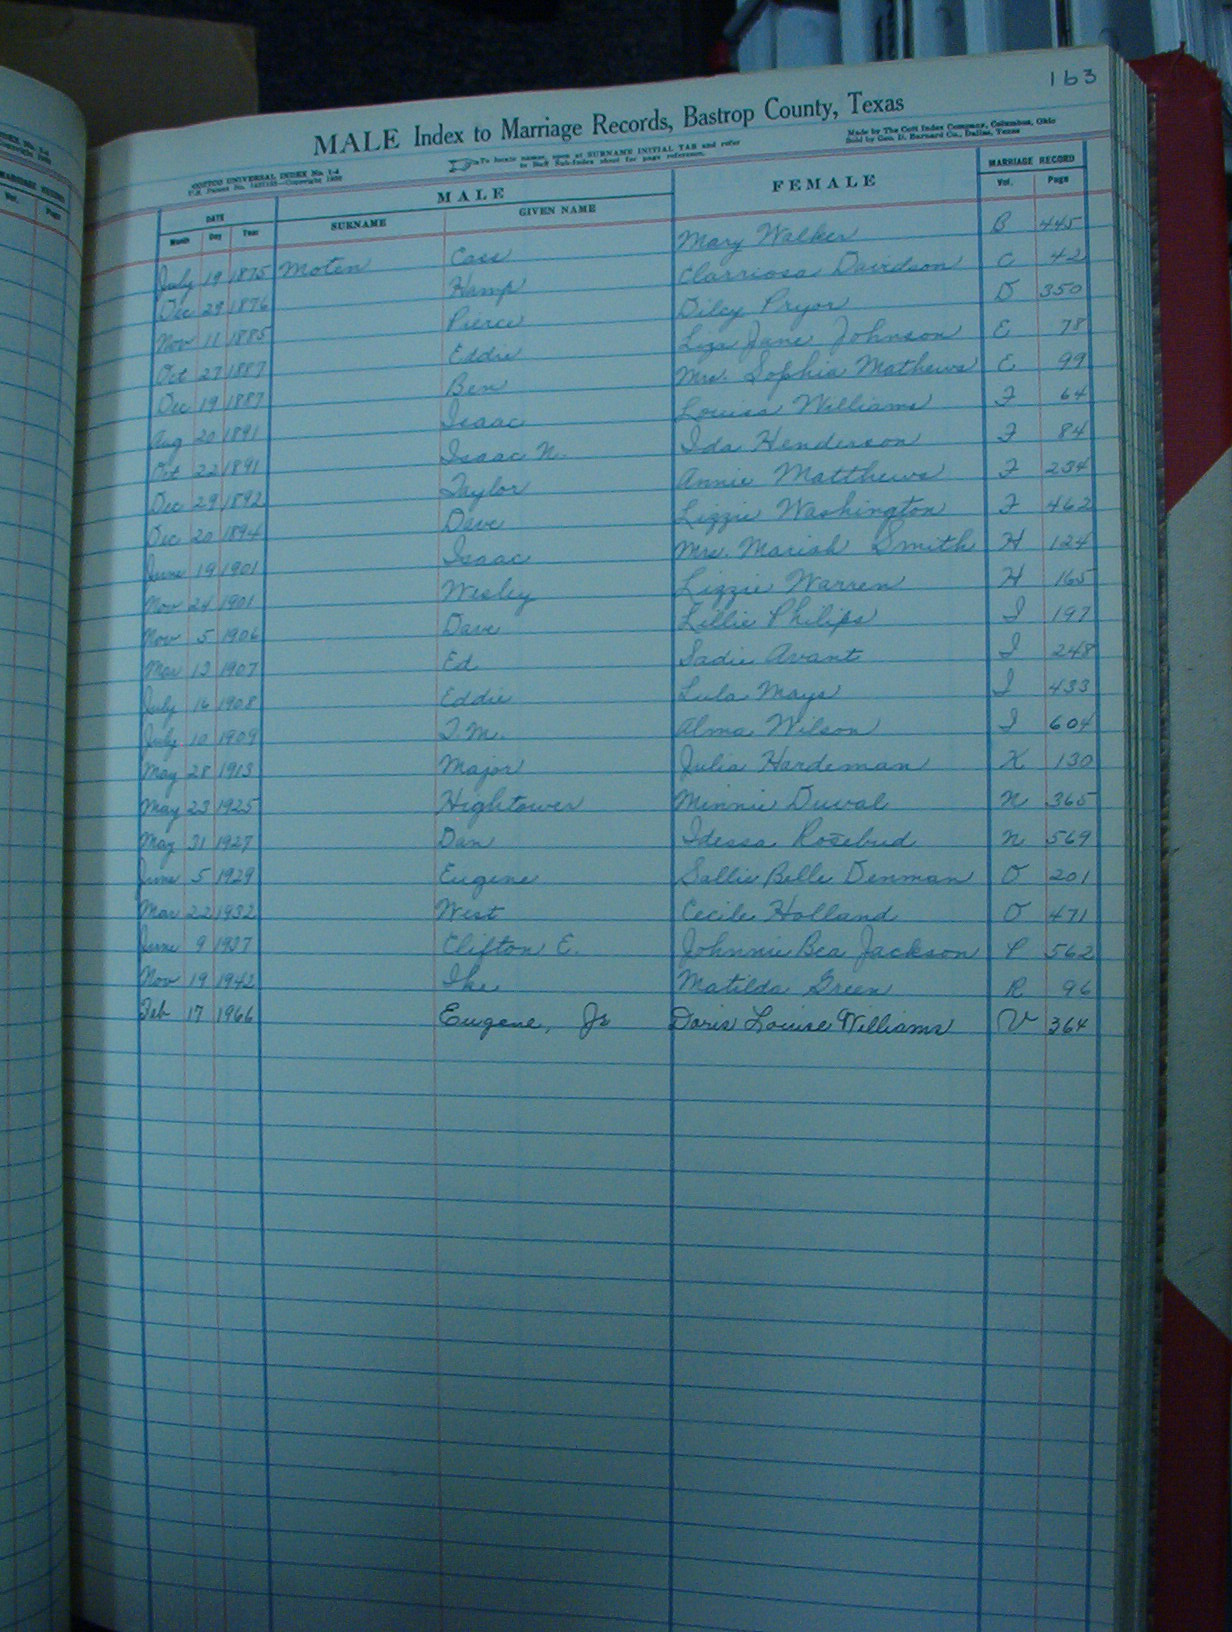 163
MALE Index to Marriage Records, Bastrop County, Texas
COTTCO UNIVERSAL INDEX No. 1-4
To locate names, open at SURNAME INITIAL TAB and refer
to Back Sub-Index sheet for page reference.
Made by The Cott Index Company, Columbus, Ohio
Sold by Geo. D. Barnard Co., Dallas, Texas
DATE MALE FEMALE MARRIAGE RECORD
Month Day Year SURNAME GIVEN NAME Vol. Page
July 19 1875 Moten Cass Mary Walker B 445
Dec 29 1876 Hamp Clarriosa Davidson C 42
Nov 11 1885 Pierce Dilcy Pryor D 350
Oct 27 1887 Eddie Liza Jane Johnson E 78
Dec 19 1887 Ben Mrs. Sophia Mathews E 99
Aug 20 1891 Isaac Louisa Williams F 64
Oct 22 1891 Isaac N. Ida Henderson F 84
Dec 29 1892 Taylor Annie Matthews F 234
Dec 20 1894 Dave Lizzie Washington F 462
June 19 1901 Isaac Mrs. Mariah Smith H 124
Nov 24 1901 Wesley Lizzie Warren H 165
Nov 5 1906 Dave Lillie Philips I 197
Mar 13 1907 Ed Sadie Avant I 248
July 16 1908 Eddie Lula Mays I 433
July 10 1909 T.M. Alma Wilson I 604
May 28 1913 Major Julia Hardeman K 130
May 23 1925 Hightower Minnie Duval N 365
May 31 1927 Dan Idessa Rosebud N 569
June 5 1929 Eugene Sallie Belle Denman O 201
Mar 22 1932 West Cecile Holland O 471
June 9 1937 Clifton E. Johnnie Bea Jackson P 562
Nov 19 1942 Ike Matilda Green R 96
Feb 17 1966 Eugene, Jr Doris Louise Williams V 364